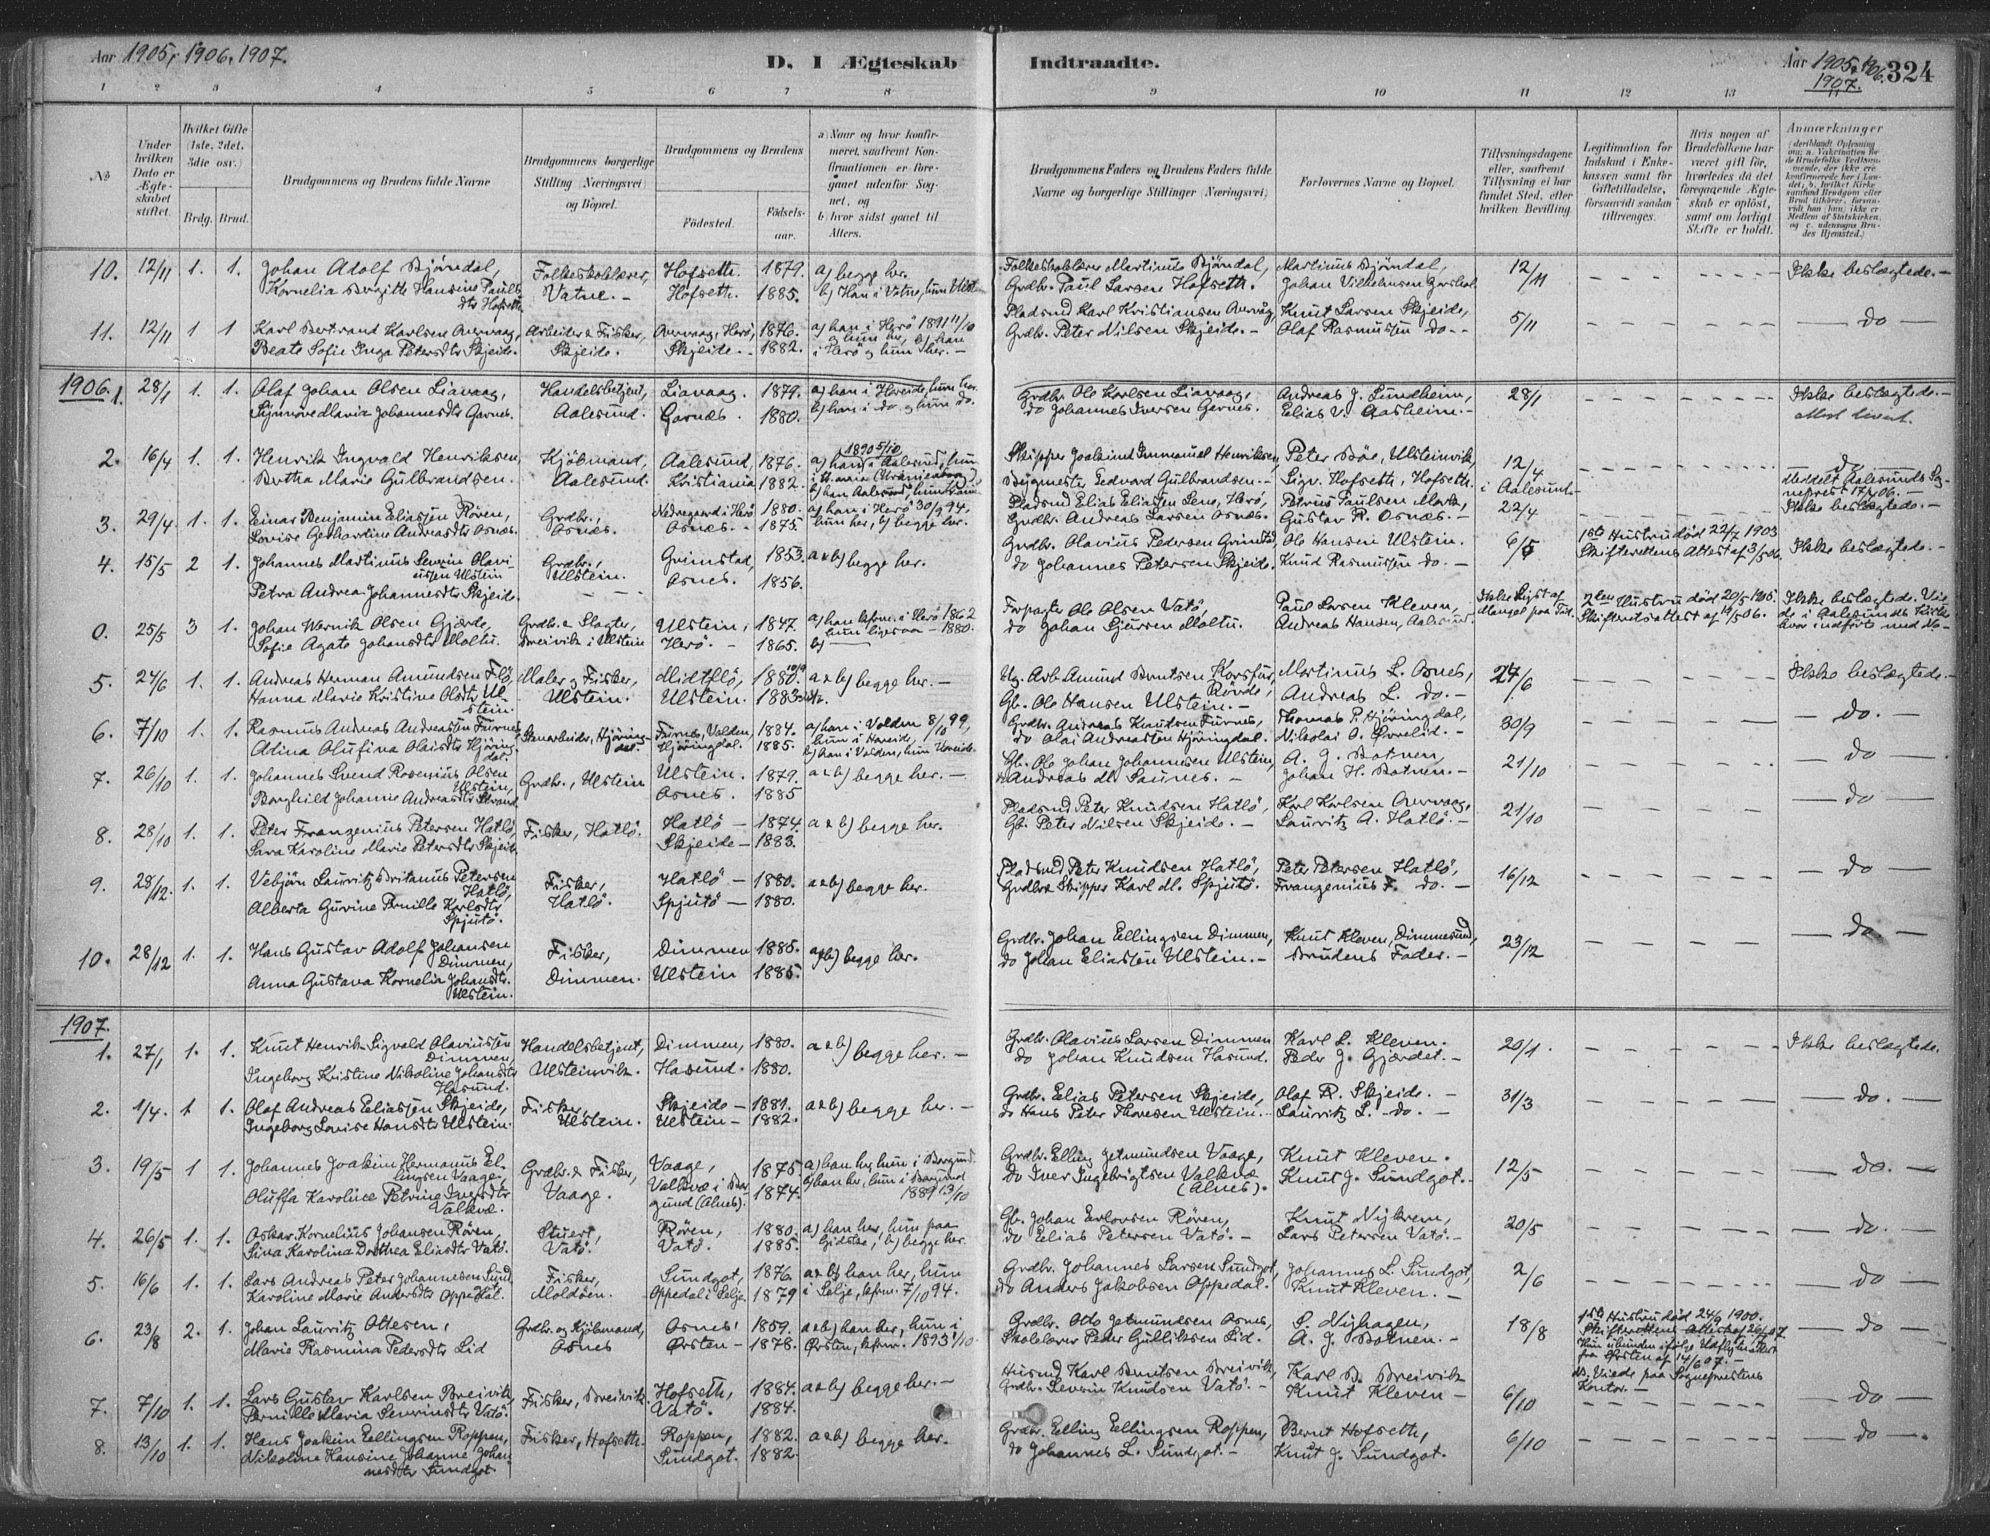 Aar 1905, 1906, 1907.
D. I Ægteskab Indtraadte.
Aar 1905, 1906. 1907. 324
1 2 3 4 5 6 7 8 9 10 11 12 13
No
Under hvilken Dato er Ægteskabet stiftet.
Hvilket Gifte (1ste, 2det, 3die osv.)
Brdg. Brud.
Brudgommens og Brudens fulde Navne
Brudgommens borgerlige Stilling (Næringsvei) og Bopæl.
Brudgommens og Brudens
Fødested. Fødselsaar.
a) Naar og hvor konfirmeret, saafremt Konfirmationen er foregaaet udenfor Sognet, og
b) hvor sidst gaaet til Alters.
Brudgommens Faders og Brudens Faders fulde Navne og borgerlige Stillinger (Næringsvei)
Forlovernes Navne og Bopæl.
Tillysningsdagene eller, saafremt Tillysning ei har fundet Sted, efter hvilken Bevilling.
Legitimation for Indskud i Enkekassen samt for Giftetilladelse, forsaavidt saadan tiltrænges.
Hvis nogen af Brudefolkene har været gift før, hvorledes da det foregaaende Ægteskab er opløst, samt om lovligt Skifte er holdt.
Anmærkninger
10. 12/11 1. 1. Johan Adolf Bjørndal, Folkeskolelærer, Hofseth. 1879. a) begge her. Folkeskolelærer Martinus Bjørndal, Martinus Bjørndal, 12/11 Ikke beslægtede.
Kornelia Birgitte Hansine Paulsdtr Hofseth. Vatne. Hofseth. 1885. b) Han i Vatne, hun Ulst. Grdbr. Paul Larsen Hofseth. Johan Vilhelmsen
11. 12/11 1 1 Karl Bertrand Karlsen Overvaag, Arbeider & Fisker, Overvaag, Herø, 1876. a) han i Herø 1891 11/10 Pladsmd Karl Kristiansen Overvåg, Knut Larsen Skjeide, 5/11 do
Beate Sofie Inga Petersdtr Skjeide. Skjeide. Skjeide. 1882. og hun her, b) han i Herø og hun her. Grdbr. Peter Nilsen Skjeide. Olaf Rasmussen do.
1906. 1. 28/1 1. 1. Olaf Johan Olsen Liavaag, Handelsbetjent, Liavaag. 1879. a) han i Hareide, hun her. Grdbr. Ole Karlsen Liavaag, Andreas J. Sundheim, 28/1 Ikke beslægtede.
Synnøve Maria Johannesdtr Garnes. Aalesund. Garnes. 1880. b) han i do og hun do. do Johannes Iversen Garnes. Elias V. Aasheim.
2. 16/4 1. 1. Henrik Ingvald Henriksen, Kjøbmand, Aalesund, 1876. a) han i Aalesund 1890 5/10, hun Skipper Joakim Immanuel Henriksen, Peter Bøe, Ulsteinvik, 12/4 do
Bertha Marie Gulbrandsen. Aalesund. Kristiania 1882. i Kr.ania (Uranienborg) b) han Aalesund, Bygmester Edvard Gulbrandsen. Sigv. Hofseth, Hofseth. i Aalesund. Meddelt Aalesunds Sognepræst 17/4 06.
3. 29/4 1. 1. Einar Benjamin Eliassen Røren, Grdbr., Nedregaard i Herø 1880. a) han i Herø 30/9 94, Pladsmd Elias Eliassen Lene, Herø, Petrus Paulsen Mork, 22/4 Ikke beslægtede.
Lovise Gerhardine Andreasdtr Osnæs. Osnæs. Osnæs. 1875. hun her, b) begge her. Grdbr. Andreas Larsen Osnæs. Gustav R. Osnæs.
4. 15/5 2 1. Johannes Martinus Severin Olaviussen Ulstein Grdbr., Grimstad, 1853. a & b) begge her. Grdbr. Olavius Pedersen Grimstad, Ole Hansen Ulstein. 6/5 1ste Hustru død 22/7 1903 Ikke beslægtede.
Petra Andrea Johannesdtr Skjeide. Ulstein. Osnes. 1856. do Johannes Petersen Skjeide. Knud Rasmussen do. Skifterettens Attest af 3/5 06.
0. 25/5 3 1. Johan Wernik Olsen Gjærde, Grdbr. & Slagter, Ulstein, 1847. a) han konfirm. i Herø 1862 Forpagter Ole Olsen Vatø, Paul Larsen Kleven, Ikke lyst af 2den Hustru død 20/5 1905. Ikke beslægtede.
Sofie Agate Johansdtr Moltu. Breivik i Ulstein Herø. 1865. hun ligesaa 1880. b) do Johan Sjursen Moltu. Andreas Hansen, Aalesund. Mangel paa Tid. Skifteretsattest af 14/5 06.
5. 24/6 1. 1. Andreas Herman Amundsen Flø, Maler & Fisker, Midtflø, 1880. a & b) begge her. Arb. Amund Bentsen Korsfur, Martinus L. Osnes, 24/6 Ikke beslægtede.
Hanna Marie Kristine Olsdtr Ulstein. Ulstein. Ulstein. 1883. Gb. Ole Hansen Ulstein. Andreas L. do.
6. 7/10 1. 1. Rasmus Andreas Andreassen Furnes, Stenarbeider, Hjøringdal. Furnes, Volden, 1884. a) han i Volden 8/10 99, Grdbr. Andreas Knudsen Furnes, Thomas P. Hjøringdal, 30/9 do.
Alina Olufina Olaisdtr Hjøringdal. Hjøringdal. 1885. hun i Hareide, b) han i Volden, hun Hareide. do Olai Andreassen Hjøringdal. Nikolai O. Øvrelid.
7. 26/10 1. 1. Johannes Svend Rosenius Olsen Ulstein, Grdbr., Ulstein Ulstein. 1879. a & b) begge her. Gb. Ole Johan Johannesen Ulstein, A. J. Botnen. 21/10 do
Borghild Johanne Andreasdtr Strand. Osnes. 1885 Andreas M. Saunes. Johan H. Botnen.
8. 28/10 1. 1. Peter Franzenius Petersen Hatlø, Fisker, Hatlø. Hatlø 1874. a & b) begge her. Pladsmd Peter Knudsen Hatlø, Karl Karlsen Overvaag, 21/10 do
Sara Karoline Marie Petersdtr Skjeide. Skjeide 1883. Gb. Peter Nilsen Skjeide. Lauritz A. Hatlø.
9. 28/12. 1. 1. Vebjørn Lauritz Britanus Petersen Hatlø, Fisker, Hatlø 1880. a & b) begge her. Pladsmd Peter Knudsen Hatlø, Peter Petersen Hatlø, 16/12 do
Alberta Gurine Pernille Karlsdtr Spjutø. Hatlø. Spjutø 1880. Grdbr & Skipper Karl M. Spjutø. Franzenius P. do.
10. 28/12 1. 1. Hans Gustav Adolf Johansen Dimmen, Fisker, Dimmen 1885. a & b) begge her. Grdbr. Johan Ellingsen Dimmen, Knut Kleven, Dimmesund, 23/12 do
Anna Gustava Kornelia Johansdtr. Ulstein. Dimmen. Ulstein 1885. do Johan Eliassen Ulstein. Brudens Fader.
1907.
1. 27/1 1. 1. Knut Henrik Sigvald Olaviussen Dimmen, Handelsbetjent, Dimmen, 1880. a & b) begge her. Grdbr. Olavius Larsen Dimmen Karl L. Kleven. 20/1. Ikke beslægtede.
Ingeborg Kristine Nikoline Johansdtr Hasund. Ulsteinvik. Hasund. 1880. do Johan Knudsen Hasund. Peder J. Gjærdet.
2. 1/4. 1 1. Olaf Andreas Eliassen Skjeide, Fisker, Skjeide 1881. a & b) begge her. Grdbr. Elias Petersen Skjeide, Olaf R. Skjeide. 31/3 do.
Ingeborg Lovise Hansdtr Ulstein. Ulstein. Ulstein 1882. do Hans Peter Thoresen Ulstein. Lauritz L. do.
3. 19/5 1 1. Johannes Joakim Hermanus Ellingsen Vaage, Grdbr. & Fisker, Vaage, 1875 a) han her, hun i Borgund. Grdbr. Elling Jetmundsen Vaage, Knut Kleven. 12/5 do.
Oluffa Karoline Petrine Iversdtr Valkvæ. Vaage. Valkvæ i Borgund (Alnes). 1874. b) han her, hun i Borgund 1889 13/10 do Iver Ingebrigtsen Valkvæ (Alnes). Knut J. Sundgot.
4. 26/5 1. 1. Oskar Kornelius Johansen Røren, Stuert, Røren, 1880. a) han her, hun paa Gb. Johan Evlovsen Røren, Knut Nykrem, 20/5 do.
Sina Karolina Dorthea Eliasdtr Vatø. Vatø. Vatø. 1885. Gidske, b) begge her. do Elias Petersen Vatø. Lars Petersen Vatø.
5. 16/6 1. 1. Lars Andreas Peter Johannesen Sund. Fisker, Sundgot, 1876. a & b) han her, hun Grdbr. Johannes Larsen Sundgot, Johannes L. Sundgot, 2/6 do
Karoline Marie Andersdtr Oppedal. Moldøen. Oppedal i Selje. 1879 i Selje, kfrm. 7/10 94. do Anders Jakobsen Oppedal. Knut Kleven.
6. 23/8 2. 1. Johan Lauritz Ottesen, Grdbr. og Kjøbmand, Osnes, 1859. a & b) han her, hun i Grdbr. Otto Jetmundsen Osnes, S. Nyhagen, 18/8 1ste Hustru død 24/9 1900. do
Marie Rasmina Pedersdtr Lid Osnes Ørsten 1878. Ørsten, kfrm. 1893 1/10 Skolelærer Peter Gulliksen Lid. A. J. Botnen. Skifterettens Attest af 26/7 07
fra Ørsten af 14/6 07.
NB. Viede paa Sognepræstens Kontor.
7. 7/10 1. 1. Lars Gustav Karlsen Breivik, Fisker, Breivik. Hofseth, 1884. a & b) begge her. Husmd Karl Bentsen Breivik, Karl B. Breivik 6/10 do
Pernille Maria Severinsdtr Vatø. Vatø. 1884. Grdbr. Severin Knudsen Vatø. Knut Kleven
8. 13/10 1. 1. Hans Joakim Ellingsen Roppen, Fisker, Hofseth. Roppen, 1882. a & b) begge her. Grdbr. Elling Ellingsen Roppen, Bernt Hofseth, 6/10 do
Nikoline Hansine Johanne Johannesdtr Sundgot. Sundgot. 1882. do Johannes L. Sundgot. Knut J. Sundgot.